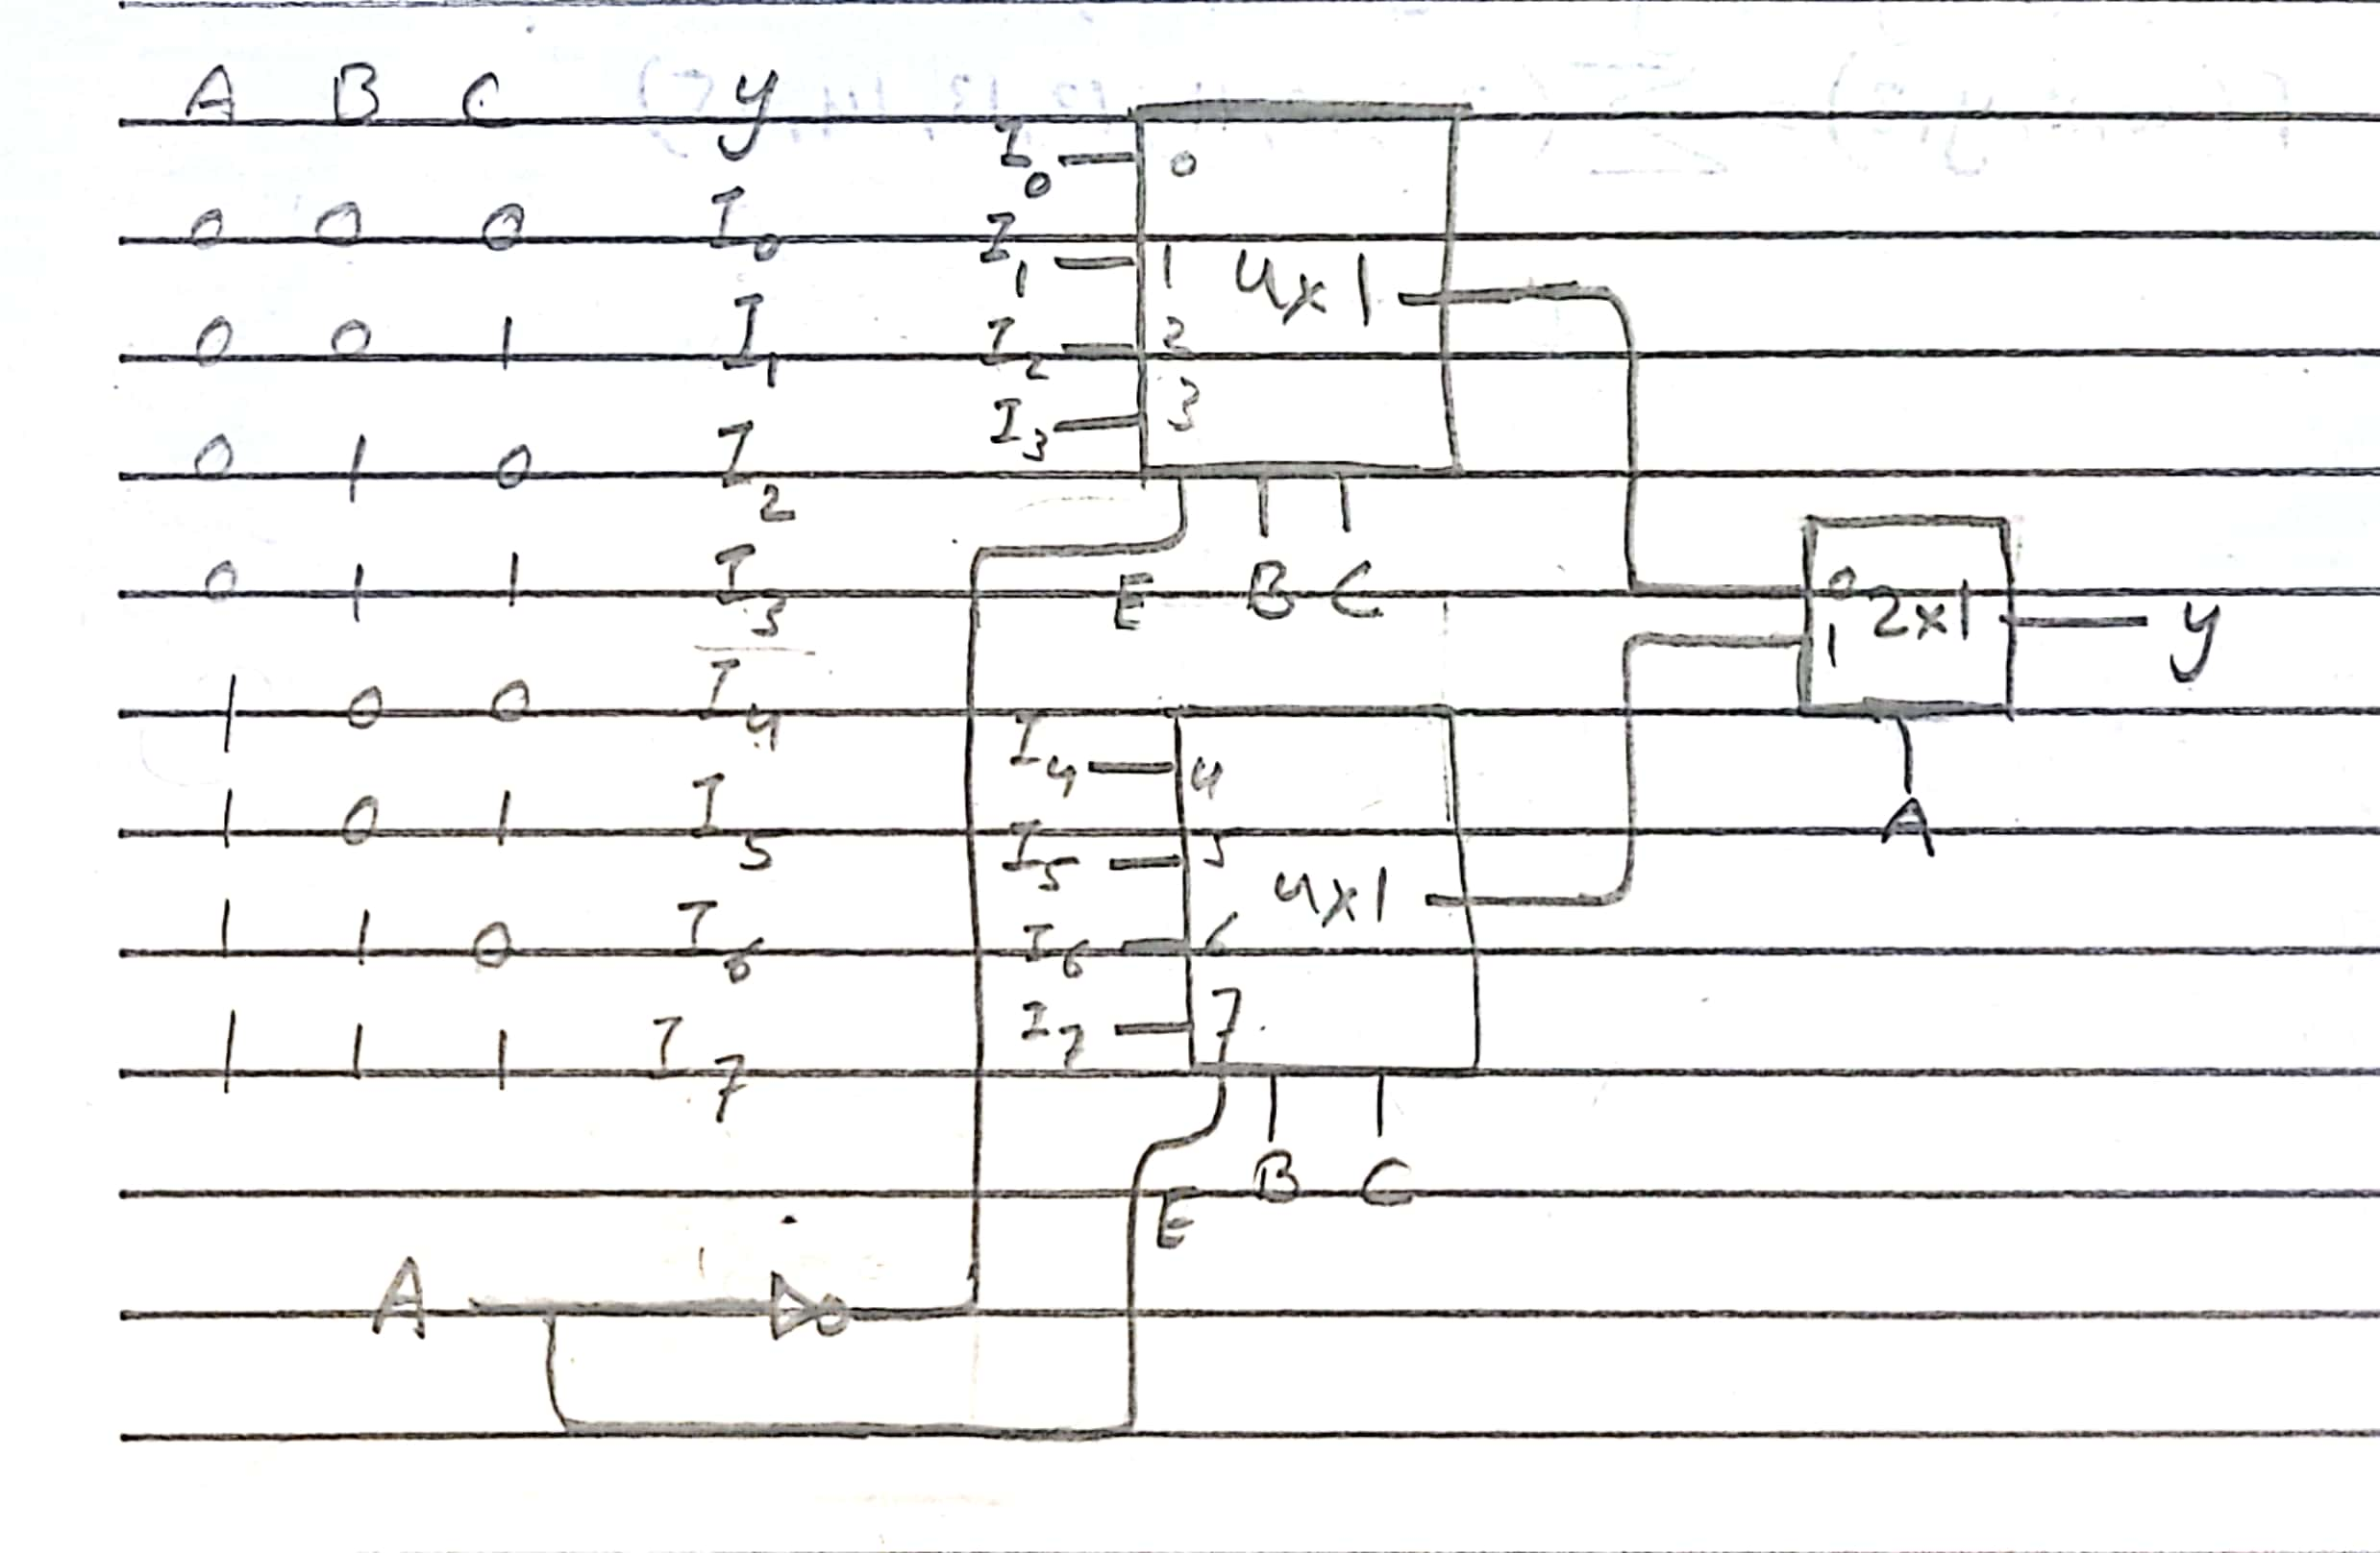 A B C y
0 0 0 I0
0 0 1 I1
0 1 0 I2
0 1 1 I3
1 0 0 I4
1 0 1 I5
1 1 0 I6
1 1 1 I7
I0 0
I1 1
I2 2
I3 3
4x1
E B C
I4 4
I5 5
I6 6
I7 7
4x1
E B C
0
1
2x1
y
A
A